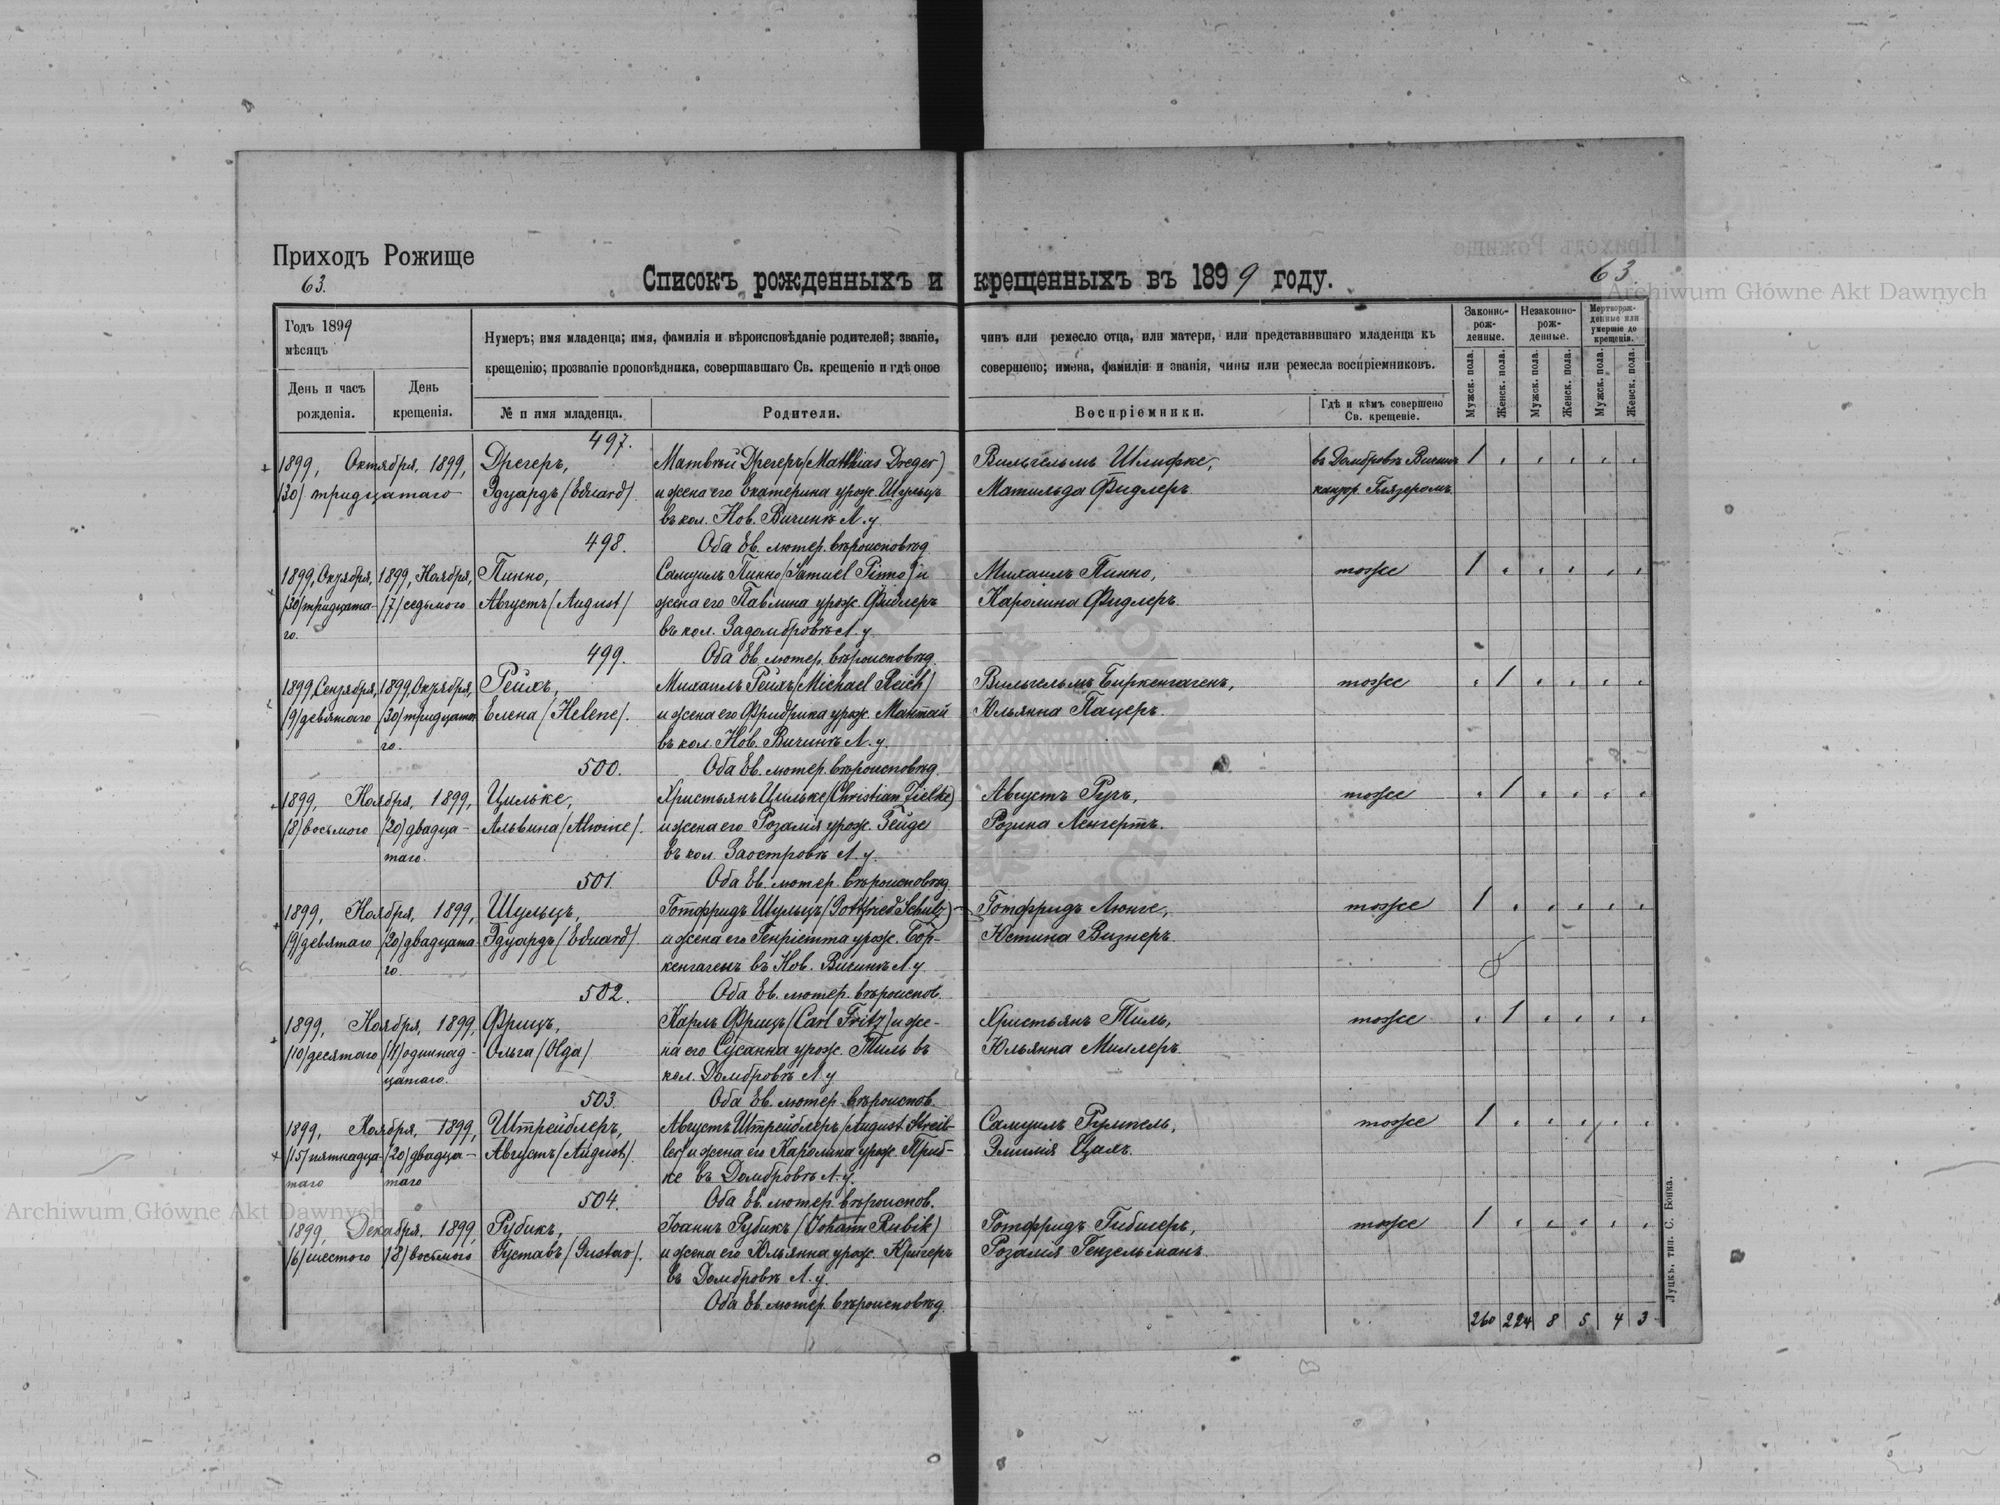 Приходъ Рожище
63.
63
Списокъ рожденныхъ и крещенныхъ въ 1899 году.
Годъ 1899
мѣсяцъ
День и часъ рожденія.
День крещенія.
Нумеръ; имя младенца; имя, фамилія и вѣроисповѣданіе родителей; званіе, чинъ или ремесло отца, или матери, или представившаго младенца къ
крещенію; прозваніе проповѣдника, совершавшаго Св. крещеніе и гдѣ оное совершено; имена, фамиліи и званія, чины или ремесла воспріемниковъ.
№ и имя младенца.
Родители.
Воспріемники.
Гдѣ и кѣмъ совершено Св. крещеніе.
Законно-рож-денные.
Незаконно-рож-денные.
Мертворож-денные или умершіе до крещенія.
Мужск. пола.
Женск. пола.
Мужск. пола.
Женск. пола.
Мужск. пола.
Женск. пола.
497.
1899, Октября, 1899, Дрегеръ, Матвѣй Дрегеръ (Matthias Dreger) Вильгельмъ Шлифке, въ Домбровкѣ 1
(30) тридцатаго Эдуардъ (Eduard). и жена его Екатерина урож. Шульцъ Матильда Фидлеръ. кантор. Глязеромъ.
въ кол. Нов. Вичинѣ Л. у.
498. Оба Ев. лютер. вѣроисповѣд.
1899, Октября, 1899, Ноября, Пинно, Самуилъ Пинно (Samuel Pinno) и Михаилъ Пинно, тоже 1
(30) тридцата- (7) седьмого Августъ (August) жена его Павлина урож. Фидлеръ Каролина Фидлеръ.
го. въ кол. Задомбровкѣ Л. у.
499. Оба Ев. лютер. вѣроисповѣд.
1899, Сентября, 1899, Октября, Рейхъ, Михаилъ Рейхъ (Michael Reich) Вильгельмъ Биркенгагенъ, тоже 1
(9) девятаго (30) тридцата- Елена (Helene). и жена его Фридрика урож. Мантай Юльянна Пацеръ.
го. въ кол. Нов. Вичинѣ Л. у.
500. Оба Ев. лютер. вѣроисповѣд.
1899, Ноября, 1899, Цильке, Христьянъ Цильке (Christian Zielke) Августъ Ручъ, тоже 1
(8) восьмого (20) двадца- Альвина (Alwine). и жена его Розалія урож. Зейде Розина Ленгертъ.
таго. въ кол. Заостровкѣ Л. у.
501. Оба Ев. лютер. вѣроисповѣд.
1899, Ноября, 1899, Шульцъ, Готфридъ Шульцъ (Gottfried Schulz) Готфридъ Люнге, тоже 1
(9) девятаго (20) двадцата- Эдуардъ (Eduard). и жена его Генріетта урож. Бор- Юстина Визнеръ.
го кенгагенъ въ Нов. Вичинѣ Л. у.
502. Оба Ев. лютер. вѣроиспов.
1899, Ноября, 1899, Фрицъ, Карлъ Фрицъ (Carl Fritz) и же- Христьянъ Тиль, тоже 1
(10) десятаго (11) одиннад- Ольга (Olga) на его Сусанна урож. Тиль въ Юльянна Миллеръ.
цатаго. кол. Домбровкѣ Л. у
503. Оба Ев. лютер. вѣроиспов.
1899, Ноября, 1899, Штрейблеръ, Августъ Штрейблеръ (August Streib- Самуилъ Румпель, тоже 1
(15) пятнадца- (20) двадца- Августъ (August). ler) и жена его Каролина урож. Приб- Эмилія Цаля.
таго таго ке въ Домбровкѣ Л. у.
504. Оба Ев. лютер. вѣроиспов.
1899, Декабря, 1899, Рубикъ, Іоаннъ Рубикъ (Johann Rubik) Готфридъ тоже 1
(6) шестого (8) восьмого Густавъ (Gustav). и жена его Юльянна урож. Кригеръ Розалія Гензельманъ.
въ Домбровкѣ Л. у.
Оба Ев. лютер. вѣроисповѣд.
260 224 8 5 4 3
Луцкъ, тип. С. Бонка.
Archiwum Główne Akt Dawnych
Archiwum Główne Akt Dawnych